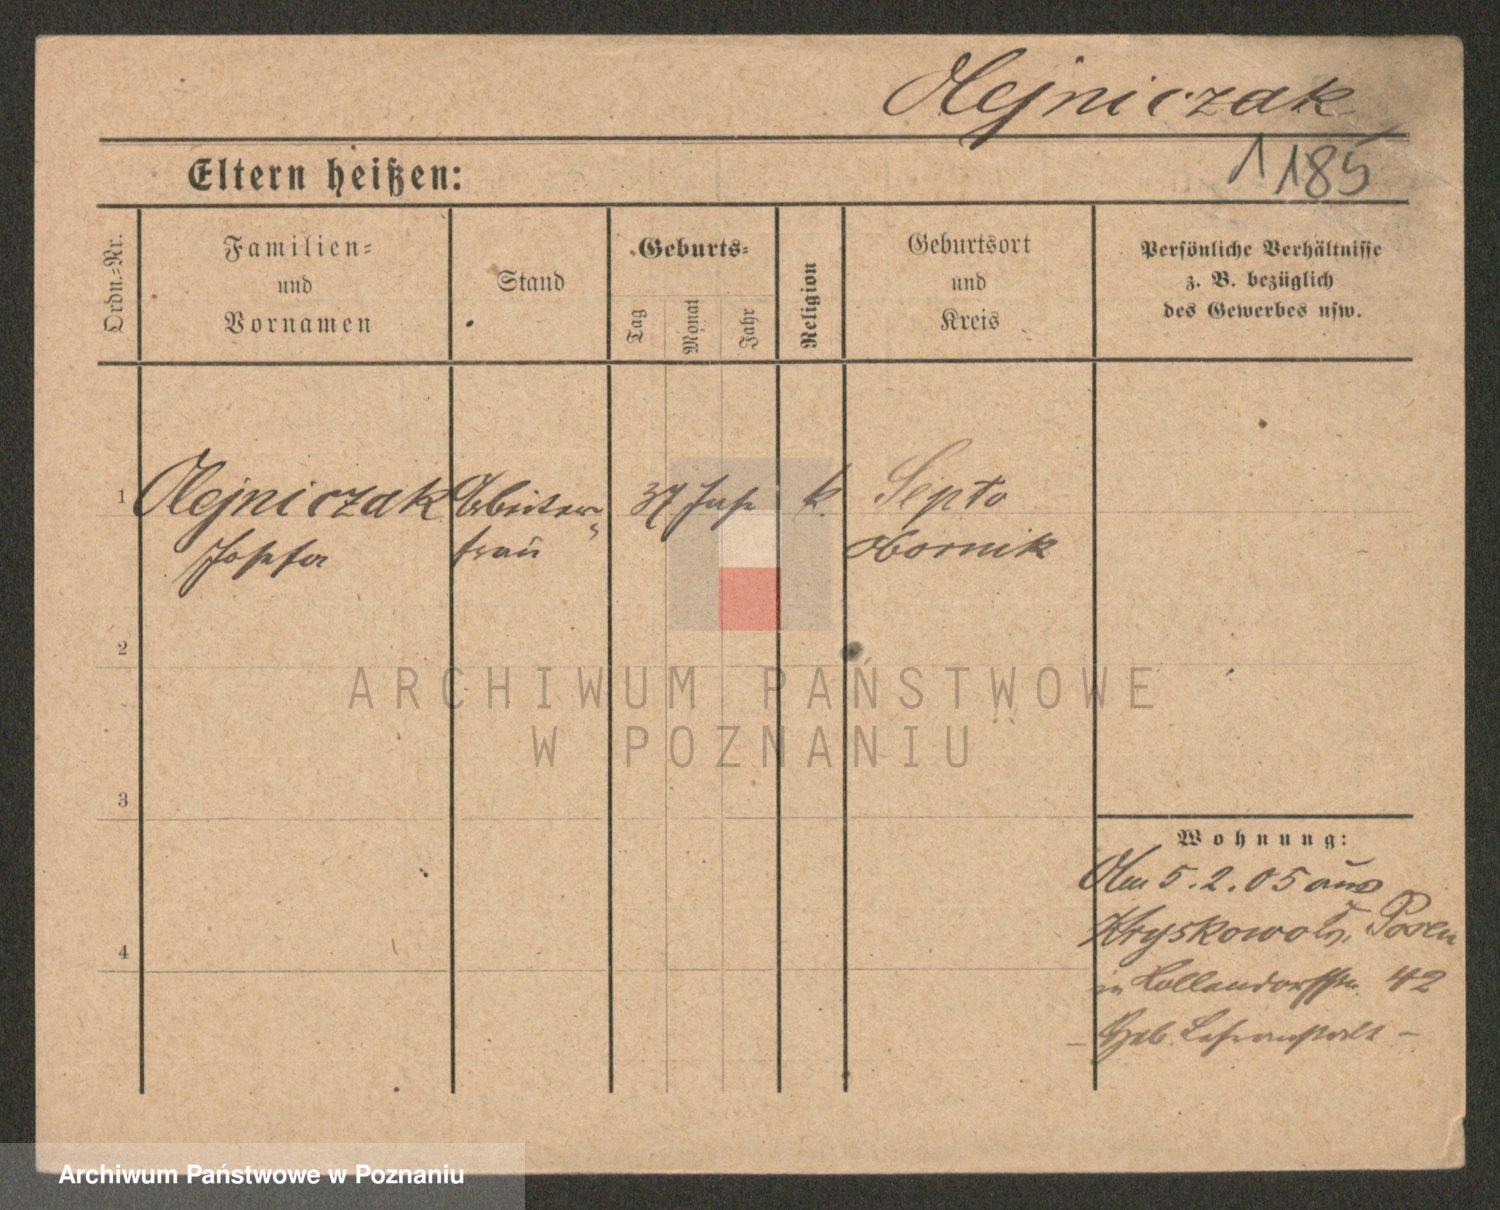 Olejniczak
1185
Eltern heißen:
Ordn.=Nr.
Familien=
und
Vornamen
Stand
Geburts=
Tag
Monat
Jahr
Religion
Geburtsort
und
Kreis
Persönliche Verhältnisse
z. B. bezüglich
des Gewerbes usw.
1
Olejniczak
Josefa
Arbeiter=
frau
37 Jahr
k.
Sepno
Obornik
2
3
4
Wohnung:
Am 5.2.05 aus
Posen
in 42
- Heb. Lehranstalt -
ARCHIWUM PAŃSTWOWE
W POZNANIU
Archiwum Państwowe w Poznaniu